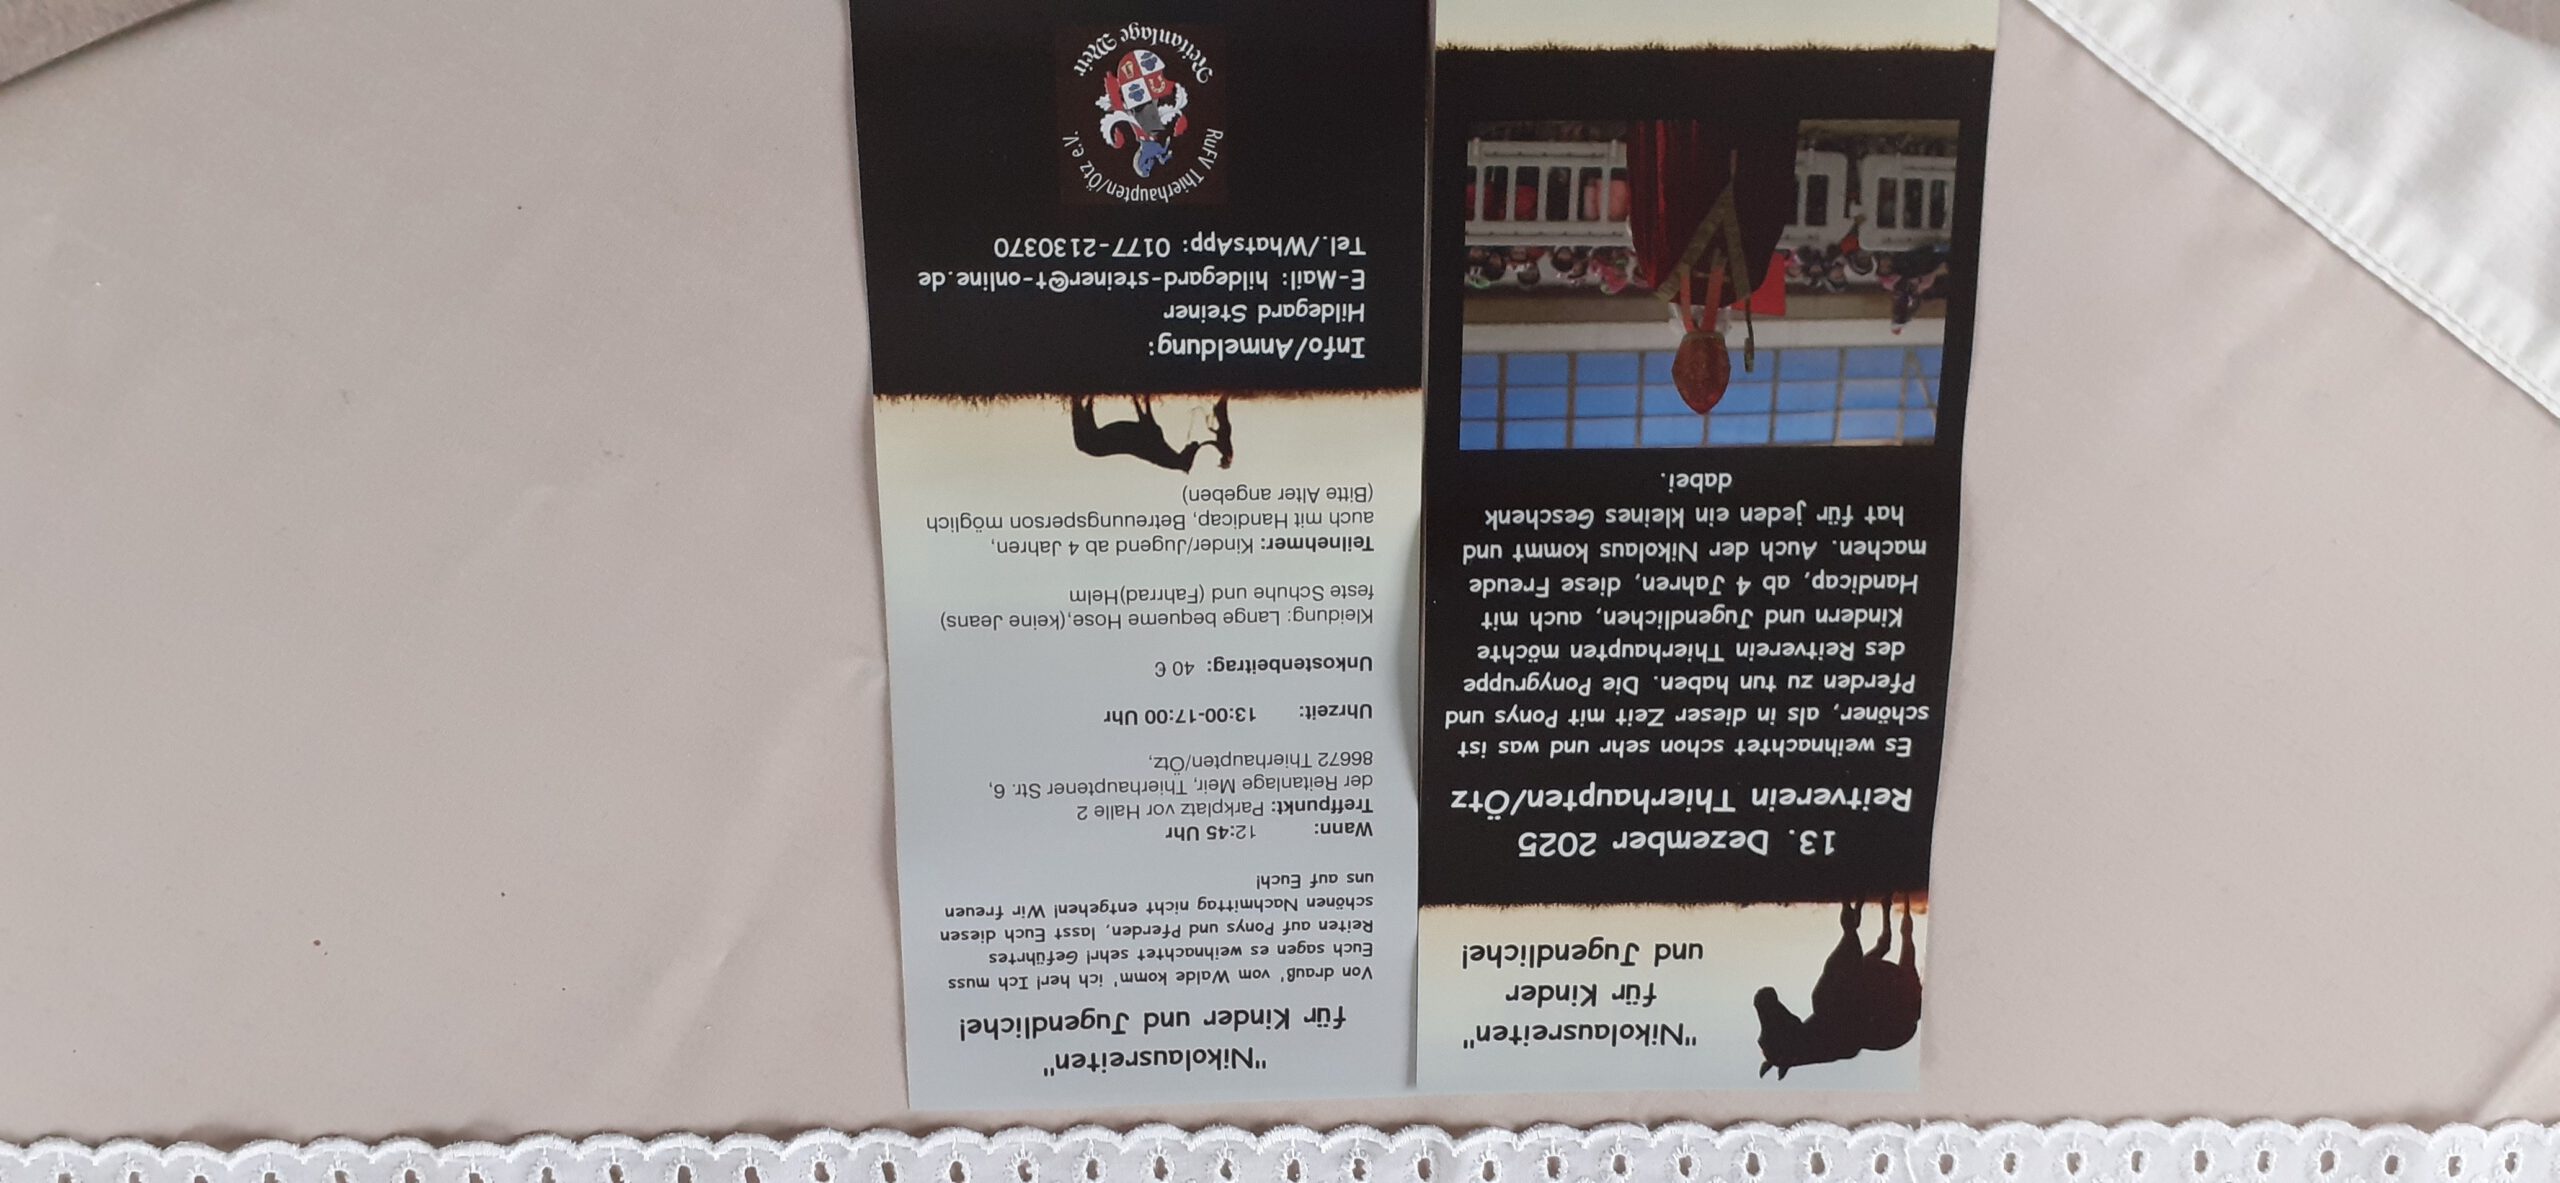 "Nikolausreiten"
für Kinder
und Jugendliche!
13. Dezember 2025
Reitverein Thierhaupten/Ötz
Es weihnachtet schon sehr und was ist
schöner, als in dieser Zeit mit Ponys und
Pferden zu tun haben. Die Ponygruppe
des Reitverein Thierhaupten möchte
Kindern und Jugendlichen, auch mit
Handicap, ab 4 Jahren, diese Freude
machen. Auch der Nikolaus kommt und
hat für jeden ein kleines Geschenk
dabei.
"Nikolausreiten"
für Kinder und Jugendliche!
Von drauß' vom Walde komm' ich her! Ich muss
Euch sagen es weihnachtet sehr! Geführtes
Reiten auf Ponys und Pferden, lasst Euch diesen
schönen Nachmittag nicht entgehen! Wir freuen
uns auf Euch!
Wann: 12:45 Uhr
Treffpunkt: Parkplatz vor Halle 2
der Reitanlage Meir, Thierhauptener Str. 6,
86672 Thierhaupten/Ötz,
Uhrzeit: 13:00-17:00 Uhr
Unkostenbeitrag: 40 €
Kleidung: Lange bequeme Hose,(keine Jeans)
feste Schuhe und (Fahrrad)Helm
Teilnehmer: Kinder/Jugend ab 4 Jahren,
auch mit Handicap, Betreuungsperson möglich
(Bitte Alter angeben)
Info/Anmeldung:
Hildegard Steiner
E-Mail: hildegard-steiner@t-online.de
Tel./WhatsApp: 0177-2130370
RuFV Thierhaupten/Ötz e.V.
Reitanlage Meir